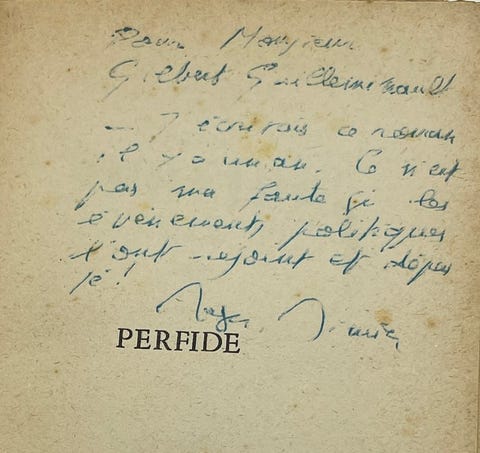 Pour Monsieur
Gilbert Guilleminault
– J'écrivais ce roman
il y a un an. Ce n'est
pas ma faute si les
événements politiques
l'ont rejoint et dépas
sé !
Roger Nimier
PERFIDE